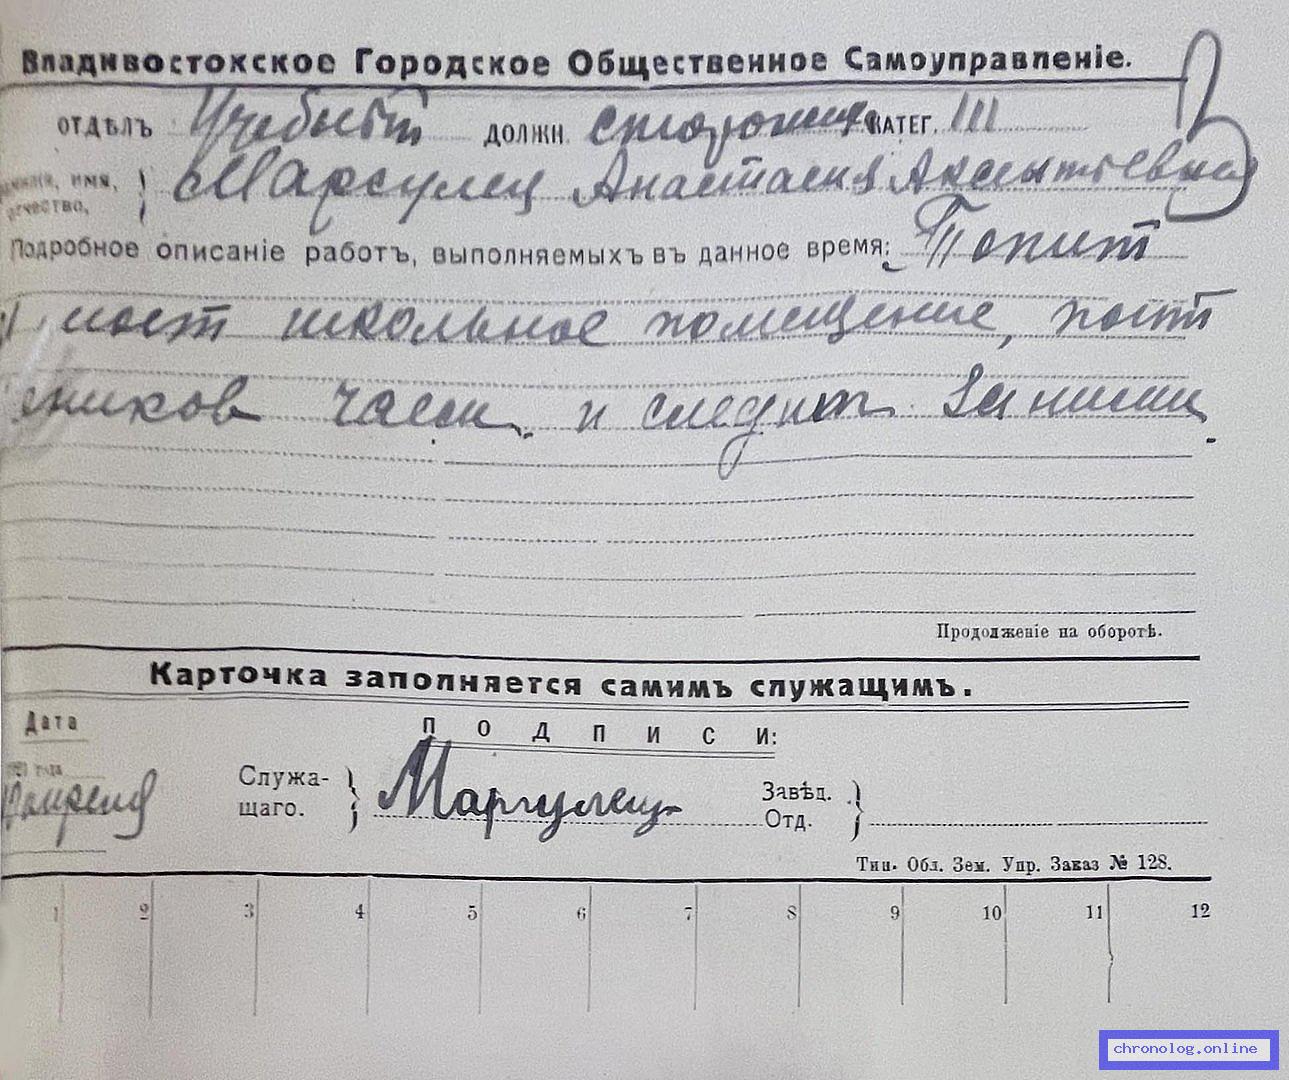 Владивостокское Городское Общественное Самоуправленіе.
ОТДѢЛЪ Учебный ДОЛЖН. сторожиха КАТЕГ. III
имя, Маргулец Анастасия Аксентьевна
отчество,
Подробное описаніе работъ, выполняемыхъ въ данное время: Топит
и моет школьное помещение,
часы, и следит за ними.
Продолженіе на оборотѣ.
Карточка заполняется самимъ служащимъ.
Дата
ПОДПИСИ:
года
Служа-
щаго. Маргулец Завѣд.
Отд.
Тип. Обл. Зем. Упр. Заказ № 128.
1 2 3 4 5 6 7 8 9 10 11 12
chronolog.online